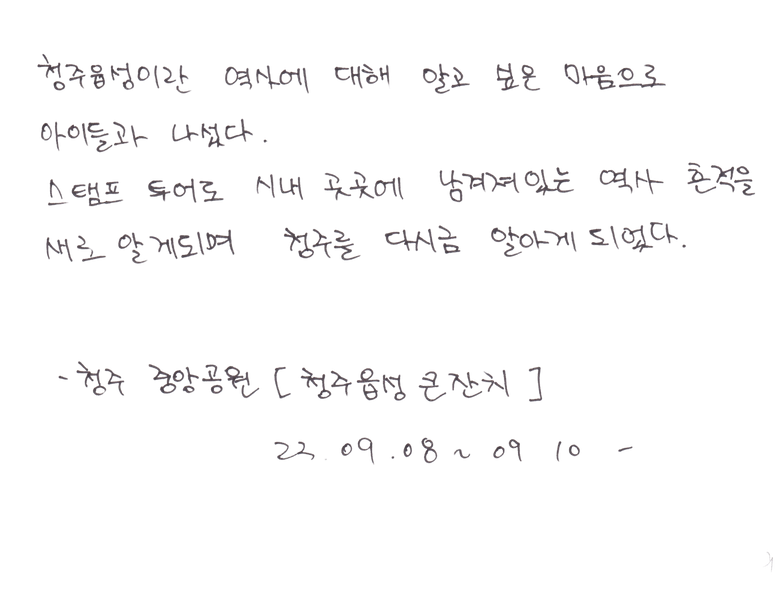 청주읍성이란 역사에 대해 알고 싶은 마음으로
아이들과 나섰다.
스탬프 투어로 시내 곳곳에 남겨져있는 역사 흔적을
새로 알게되며 청주를 다시금 알아게 되었다.
- 청주 중앙공원 [ 청주읍성 큰잔치 ]
22.09.08 ~ 09 10 -